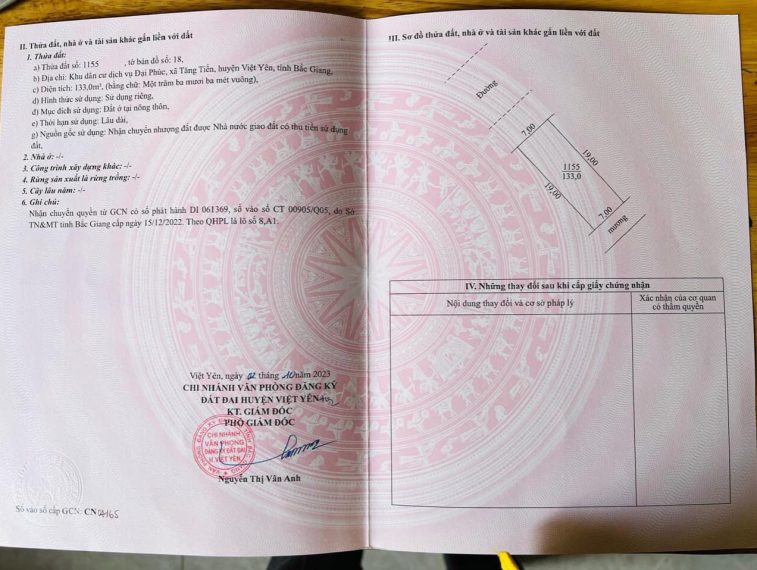 II. Thửa đất, nhà ở và tài sản khác gắn liền với đất
1. Thửa đất:
a) Thửa đất số: 1155 , tờ bản đồ số: 18,
b) Địa chỉ: Khu dân cư dịch vụ Đại Phúc, xã Tăng Tiến, huyện Việt Yên, tỉnh Bắc Giang,
c) Diện tích: 133,0m², (bằng chữ: Một trăm ba mươi ba mét vuông),
d) Hình thức sử dụng: Sử dụng riêng,
đ) Mục đích sử dụng: Đất ở tại nông thôn,
e) Thời hạn sử dụng: Lâu dài,
g) Nguồn gốc sử dụng: Nhận chuyển nhượng đất được Nhà nước giao đất có thu tiền sử dụng
đất,
2. Nhà ở: -/-
3. Công trình xây dựng khác: -/-
4. Rừng sản xuất là rừng trồng: -/-
5. Cây lâu năm: -/-
6. Ghi chú:
Nhận chuyển quyền từ GCN có số phát hành DI 061369, số vào sổ CT 00905/Q05, do Sở
TN&MT tỉnh Bắc Giang cấp ngày 15/12/2022. Theo QHPL là lô số 8,A1.
Việt Yên, ngày 02 tháng 10 năm 2023
CHI NHÁNH VĂN PHÒNG ĐĂNG KÝ
ĐẤT ĐAI HUYỆN VIỆT YÊN
KT. GIÁM ĐỐC
PHÓ GIÁM ĐỐC
CHI NHÁNH
VĂN PHÒNG
ĐĂNG KÝ ĐẤT ĐAI
H.VIỆT YÊN
Nguyễn Thị Vân Anh
Số vào sổ cấp GCN: CN
III. Sơ đồ thửa đất, nhà ở và tài sản khác gắn liền với đất
Đường
7,00
19,00
1155
133,0
19,00
7,00
mương
IV. Những thay đổi sau khi cấp giấy chứng nhận
Nội dung thay đổi và cơ sở pháp lý
Xác nhận của cơ quan
có thẩm quyền